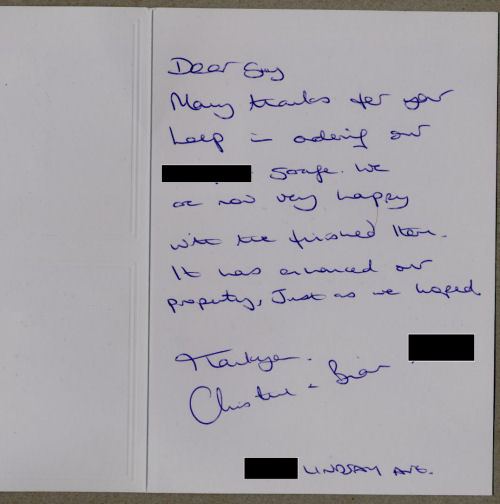 Dear Guy
Many thanks for your
help in ordering our
garage. We
are now very happy
with the finished item.
It has enhanced our
property, Just as we hoped
Thankyou.
Christine & Brian
LINDSAY AVE.